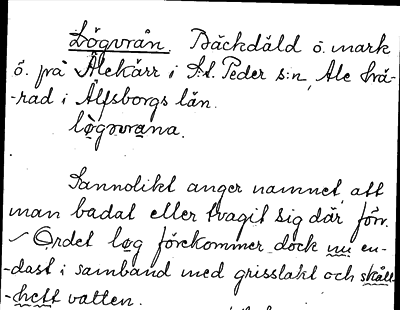 Lögvrån Bäckdäld o. mark
ö. frå Alekärr i S:t Peder s:n, Ale hä-
-rad i Älfsborgs län.
lo̱gvra̱na.
Sannolikt anger namnet att
man badat eller tvagit sig där förr.
Ordet log förekommer dock nu en-
-dast i samband med grisslakt och skåll-
-hett vatten.